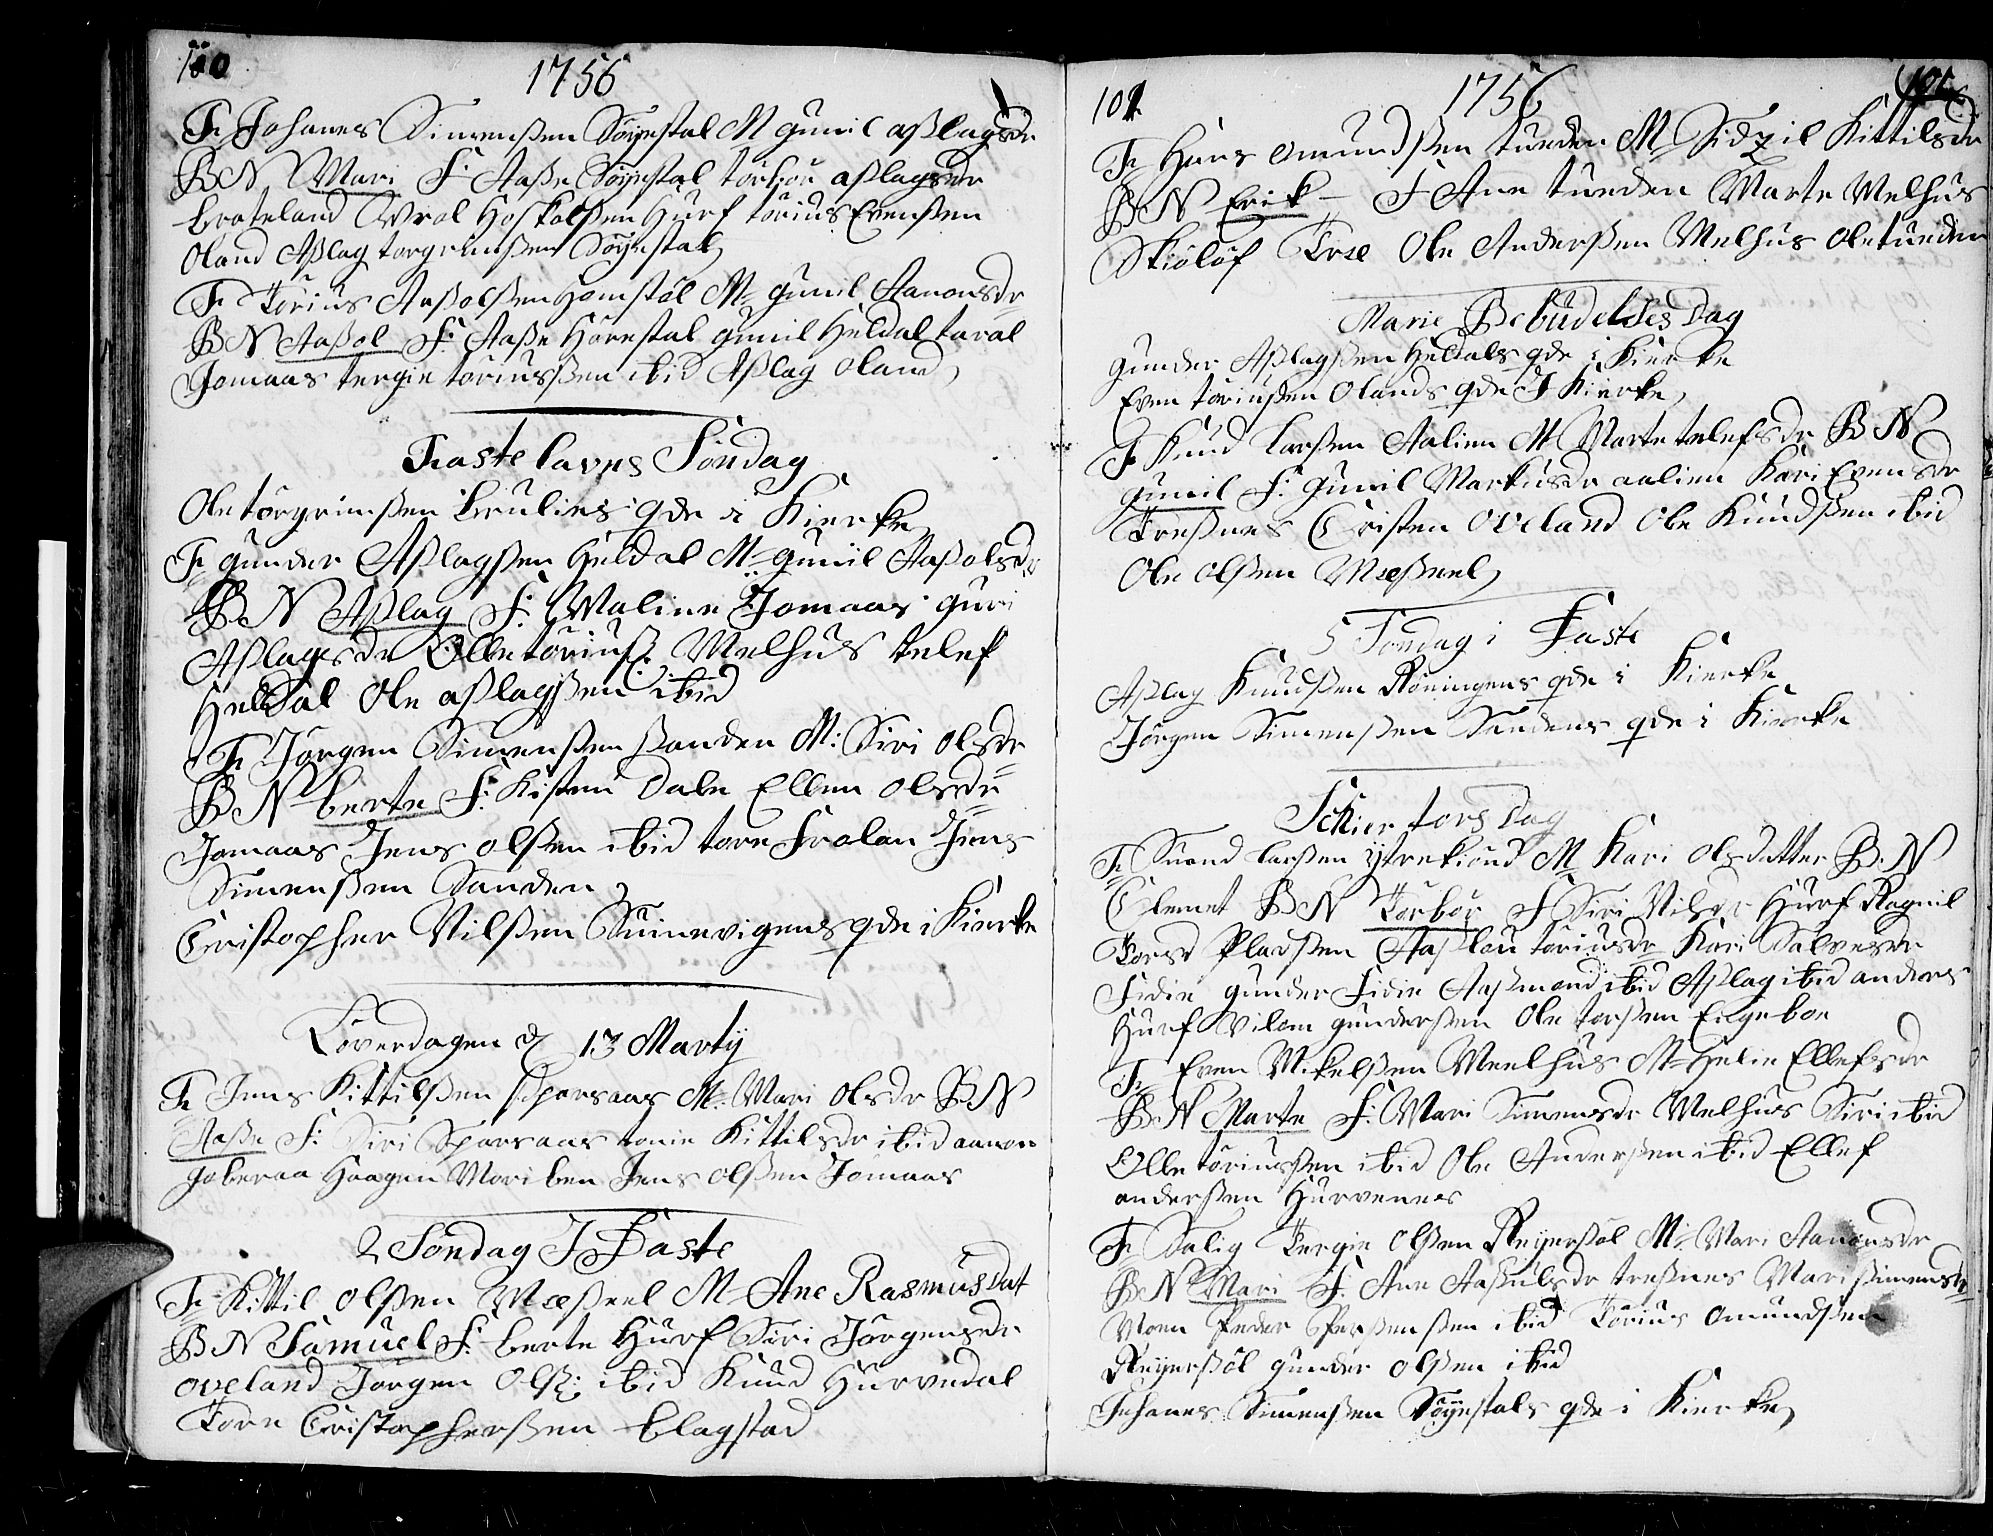 100
1756
F Johanes Simensen Søÿestøl M Gunil Aslagsdr
BN Mari F: Aaße Søyestøl Torbor Aslagsdr
Braateland Wrol Hoskolsen Hurf Torius Evensen
Oland Aslag Torgrimsen Søyestøl
F Torius Aasolsen Homstøl M Gunil Aanonsdr
BN Aasol F: Aaße Homstøl Gunil Heldal Tarol
Jomaas Tergie Toriussen ibid Aslag Oland
Fastelavns Søndag
Ole Torgrimsen Brulies qde i Kierke
F Gunder Aslagsen Heldal M Gunil Aasolsdr
BN Aslag F: Maline Jomaas Guri
Aslagsdr Olle Toriuss Melhus Telef
Heldal Ole Aslagsen ibid
F Jørgen Simensen Sanden M: Siri Olsdr
BN Berte F: Kisten Dale Ellen Olsdr
Jomaas Jens Olsen ibid Tore Frolan Jens
Simensen Sanden
Cristopher Nilsen Suinevigens qde i Kierke
Løverdagen d 13 Martÿ
F Jens Kittilsen Sparsaas M: Mari Olsdr BN
Aaße F: Siri Sparsaas Tonie Kittilsdr ibid Aanon
Haagen Jens Olsen Jomaas
2 Søndag J Faste
F Kittil Olsen Mæsseel M Ane Rasmusdat
BN Samuel F: Berte Hurf Siri Jørgensdr
Oveland Jørgen Olss: ibid Knud Hurvedal
Tore Cristophersen Blagstad
101
1756
101
F Hans Omundsen Tueden M Sidzil Kittilsdr
BN Erik F Ane Tueden Marte Melhus
Skiølof Træ Ole Andersen Melhus Ole Tueden
Marie Bebudelses Dag
Gunder Aslagsen Heldals qde i Kierke
Even Toriusen Olands qde J Kierke
F Knud Larsen Aalien M Marte Telefsdr BN
Gunil F: Gunil Markusdr Aalien Kari Evensdr
Tresnes Cristen Oveland Ole Knudsen ibid
Ole Olsen Mæsseel
5 Søndag i Faste
Aslag Knudsen Røningens qde i Kierke
Jørgen Simensen Sandens qde i Kierke
Schier torsdag
F Suend Larsen Ytrekiønd M Kari Olsdatter B.N
Clemet BN Torbor F Siri Nilsdr Hurf Ragnil
Torsd Pladsen Aaslau Toriusdr Kari Salvesdr
Fidie Gunder Fidie Aasmond ibid Aslag ibid Anders
Hurf Vilom Gundersen Ole Torsen Engeboe
F Even Mikelsen Meelhus M Helie Ellefsdr
BN Marte F: Mari Simensdr Melhus Siri ibid
Olle Toriussen ibid Ole Andersen ibid Ellef
Andersen Hurvenes
F Salig Tergie Olsen Reyersøl M: Mari Aanonsdr
BN Mari F. Ane Aaskulsdr Tresnes Mari Simensdr
Moen Peder ibid Torius Omundsen
Reyersøl Gunder Olsen ibid
Johanes Simensen Søyestøls qde i Kierke